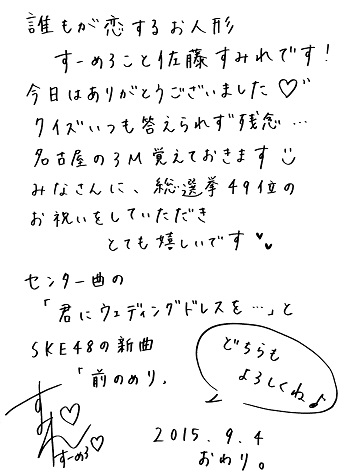 誰もが恋するお人形
すーめろこと佐藤すみれです!
今日はありがとうございました♡”
クイズいつも答えられず残念…
名古屋の3M覚えておきます
みなさんに、総選挙49位の
お祝いをしていただき
とても嬉しいです
センター曲の
「君にウェディングドレスを…」と
SKE48の新曲
「前のめり」
どちらも
よろしくね♪
すみれ♡
すーめろ♡
2015.9.4
おわり。